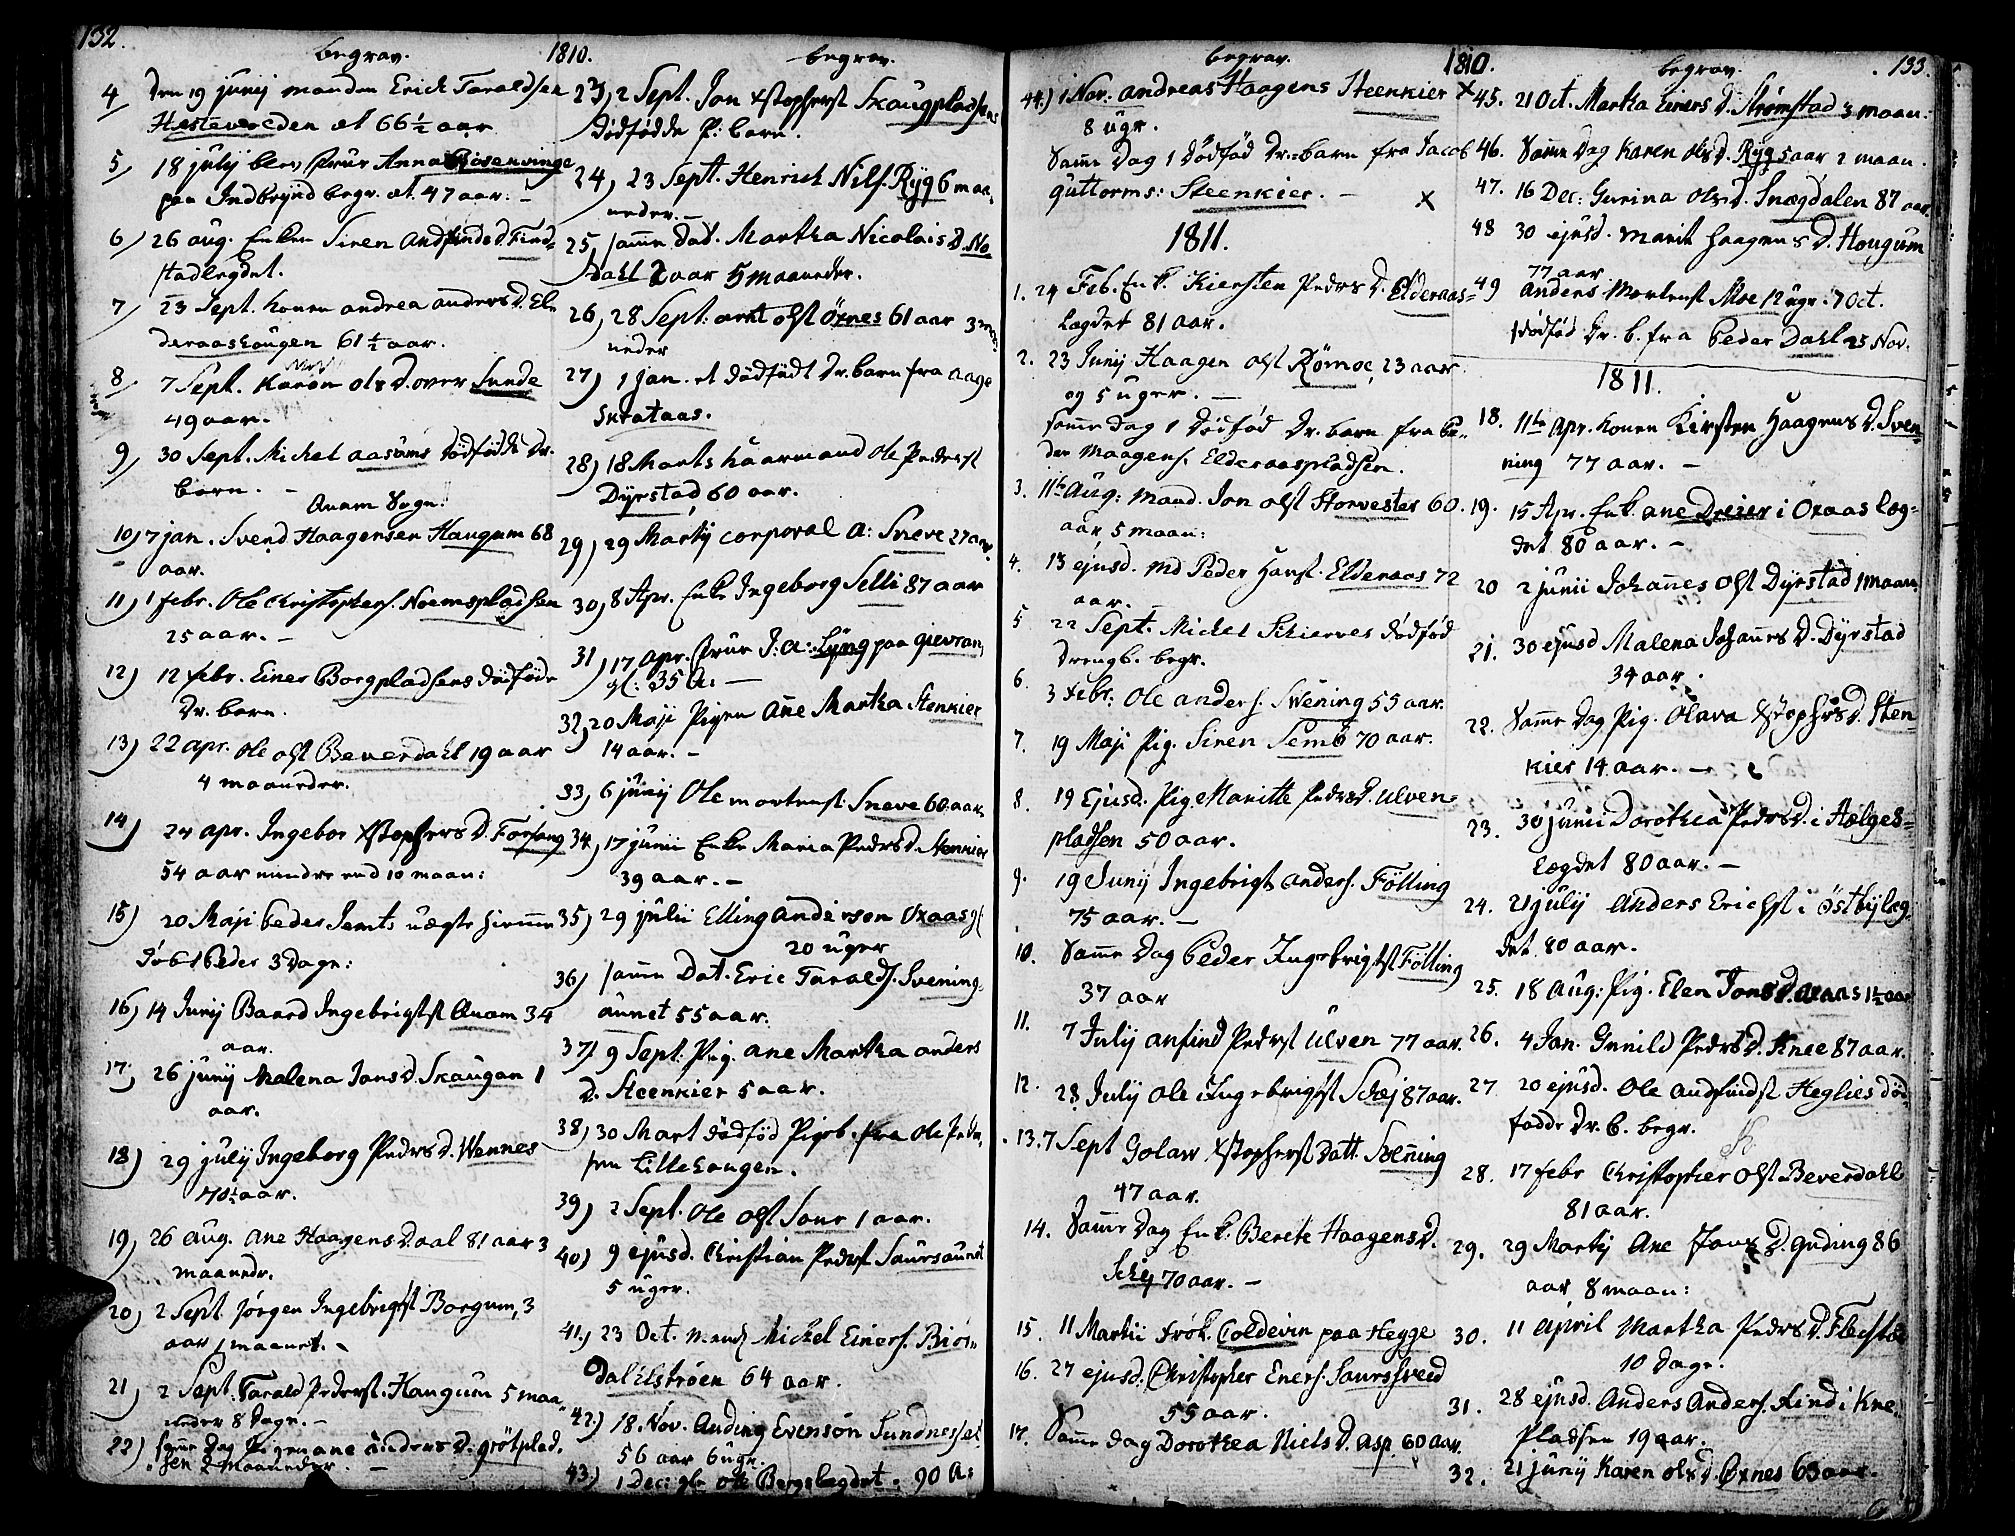 132.
begrav. 1810.
4 den 19 junij manden Erich Taraldsen
Hestevereden et 66 1/2 aar
5 18 julij blev Frue Anna Rosenvinge
paa Indbrynd begr. et. 47 aar. -
6 26 aug. Enken Siren Andfinds D. Find-
stadlegdet.
7 23 Sept. konen andrea anders D. El-
deraashaugen 61 1/2 aar.
8 7 Sept. Karen Ols D. over Sunde
49 aar.
9 30 Sept. Michel aasums dödfödde Dr.
barn. -
Quam Sogn.
10) 7 jan. Svend Haagensen Haugum 68
aar.
11) 1 febr. Ole Christophers. Noemspladsen
25 aar. -
12) 12 febr. Einer Borgpladsens dödföde
Dr. barn.
13) 22 apr. Ole Olst Beverdahl 19 aar
4 maaneder.
14) 24 apr. Ingebor Xstophers D. Forsang
54 aar mindre end 10 maan:
15) 20 Maji Peder Semts uægte
Peder 3 Dage:
16) 14 Junij Baard Ingebrigtst Quam 34
aar.
17) 26 junij Malena Jons D. Skaugan 1
aar.
18) 29 julij Ingeborg Peders D. Wennes
70 1/2 aar.
19) 26 aug. ane Haagens D. aal 81 aar 3
maanedr.
20) 2 Sept. Jörgen Ingebrigtst Borgum, 3
aar 1 maanet.
21) 2 Sept. Tarald Pederst. Haugum 5 maa-
neder 8 Dage. -
22) samme Dag Pigen ane anders D. grötplad.
sen 2 maaneder. -
begrav.
23, 2 Sept. Jon Xstopherst Skaugpladsens
dödfödde P: barn.
24, 23 Sept. Henrich Nils. Ryg 6 maa-
neder. -
25, samme Dat. Martha Nicolais D. No-
Dahl 2 aar 5 maaneder.
26, 28 Sept: arnt olst Öxnes 61 aar 3 maa-
neder
27) 1 Jan. et dödfödt Dr. barn fra aage
Skrataas.
28) 18 Marts haarmand Ole Pederst
Dyrstad, 60 aar.
29) 29 Martij corporal A: Sneve 27 aar.
30, 8 Apr. Enke Ingeborg Selli 87 aar
31, 17 apr. Frue J: A: Lyng paa gievran,
gl: 35 A: -
32, 20 Maji Pigen Ane Martha Stenkier
14 aar. -
33, 6 junij Ole mortenst Sneve 60 aar.
34, 17 junii Enke Maria Peders D. Stenkier
39 aar. -
35) 29 julii Elling Anderson Oxaas gl
20 uger
36) samme Dat. Eric Taralds. Svening-
aunet 55 aar.
37) 9 Sept. Pig. ane Martha anders
D. Steenkier 5 aar.
38) 30 Mart dödföd Pigeb. fra Ole Peder-
sen Lillehaugen.
39) 2 Sept. Ole Olst Saur 1 aar.
40) 9 ejusd. Christian Pederst Saursaunet
5 uger.
41.) 23 Oct. mand Michel Einers. Biör-
dal Elströen 64 aar.
42.) 18. Nov. Auding Evenson Sundnesset
56 aar 6 ugr.
43.) 1 Dec: Ole Bergslegdet. 90 A:
begrav. 1810.
44.) 1 Nov. andreas Haagens Steenkier X
8 ugr.
Samme Dag 1 dödföd Dr. barn fra Jacob
guttorms: Steenkier. - X
1811.
1. 24 Feb. Enk. Kiersten Peders D. Elderaas-
lægdet 81 aar.
2. 23 Junij Haagen Olst Römoe, 23 aar.
og 5 uger. -
Samme Dag 1 dödföd Dr. barn fra Pe-
der Maagens. Elderaaspladsen.
3. 11te Aug: Mand. Jon Olst Storvester 60.
aar 5 maan:
4. 13 ejusd. Md Peder Hanst. Elderaas 72
aar. -
5 22 Sept. Michel Schierves dödföd
Drengb. begr.
6. 3 Febr: Ole anders. Svening 55 aar.
7. 19 Maji Pig. Siren Semb 70 aar.
8. 19 Ejusd. Pige Maritte Peders D. Ulven-
pladsen 50 aar.
9. 19 Junij Ingebrigt anders. Fölling
75 aar. -
10. Samme Dag Peder Ingebrigtst Fölling
37 aar
11. 7 Julij anfind Pederst Ulven 77 aar.
12. 28 Julij Ole Ingebrigtst Schej 87 aar.
13. 7 Sept Golaw Xstopherst datt. Svening
47 aar.
14. Samme Dag Enk. Berete Haagens D.
Schej 70 aar. -
15. 11 Martii Frök. Coldevin paa Hegge
16. 27 ejusd. Christopher Eners. Saurssveed
55 aar.
17. Samme dag Dorothea Niels D. Asp. 60 aar.
begrav. 133.
45. 21 Oct. Martha Einers D. Strömstad 3 maan.
46. Samme Dag Karen Ols D. Ryg 5 aar 2 maan.
47. 16 Dec: Gurina Ols D. Snægdalen 87 aar.
48 30 ejusd. Marit Haagens D. Hougum
77 aar
49 Anders Mortenst Moe 12 ugr. 7 Oct.
1 dödföd Dr. b. fra Peder Dahl 25 Nov.
1811.
18. 11te Apr. Konen Kirsten Haagens D. Sven-
ning 77 aar. -
19. 15 Apr. Enk. ane Dreier i Oxaas læg-
det 80 aar. -
20 2 junii Johannes Olst Dyrstad 1 maan.
21. 30 ejusd Malena Johannes D. Dyrstad
34 aar.
22. Samme Dag Pig. Olava Xstophers D. Sten-
kier 14 aar. -
23. 30 junii Dorothea Peders D. i Helges-
lægdet 80 aar. -
24. 21 julij Anders Erichst i Östbylæg-
det. 80 aar.
25. 18 Aug: Pig. Elen Jons D. Oxaas 1 1/2 aar
26. 4 Jan. Gunild Peders D. Knee 87 aar.
27 20 ejusd. Ole Andfindst Heglies död-
födde Dr. b. begr.
28. 17 febr Christopher Olst Beverdahl
81 aar.
29. 29 Martij Ane Jons D. gnding 86
aar 8 maan:
30. 11 April Martha Peders D. Flecstad
10 dage.
31. 28 ejusd. Anders Anders. Rind i Kne-
Pladsen 19 aar.
32. 21 junij Karen Ols D. Öxnes 63 aar.